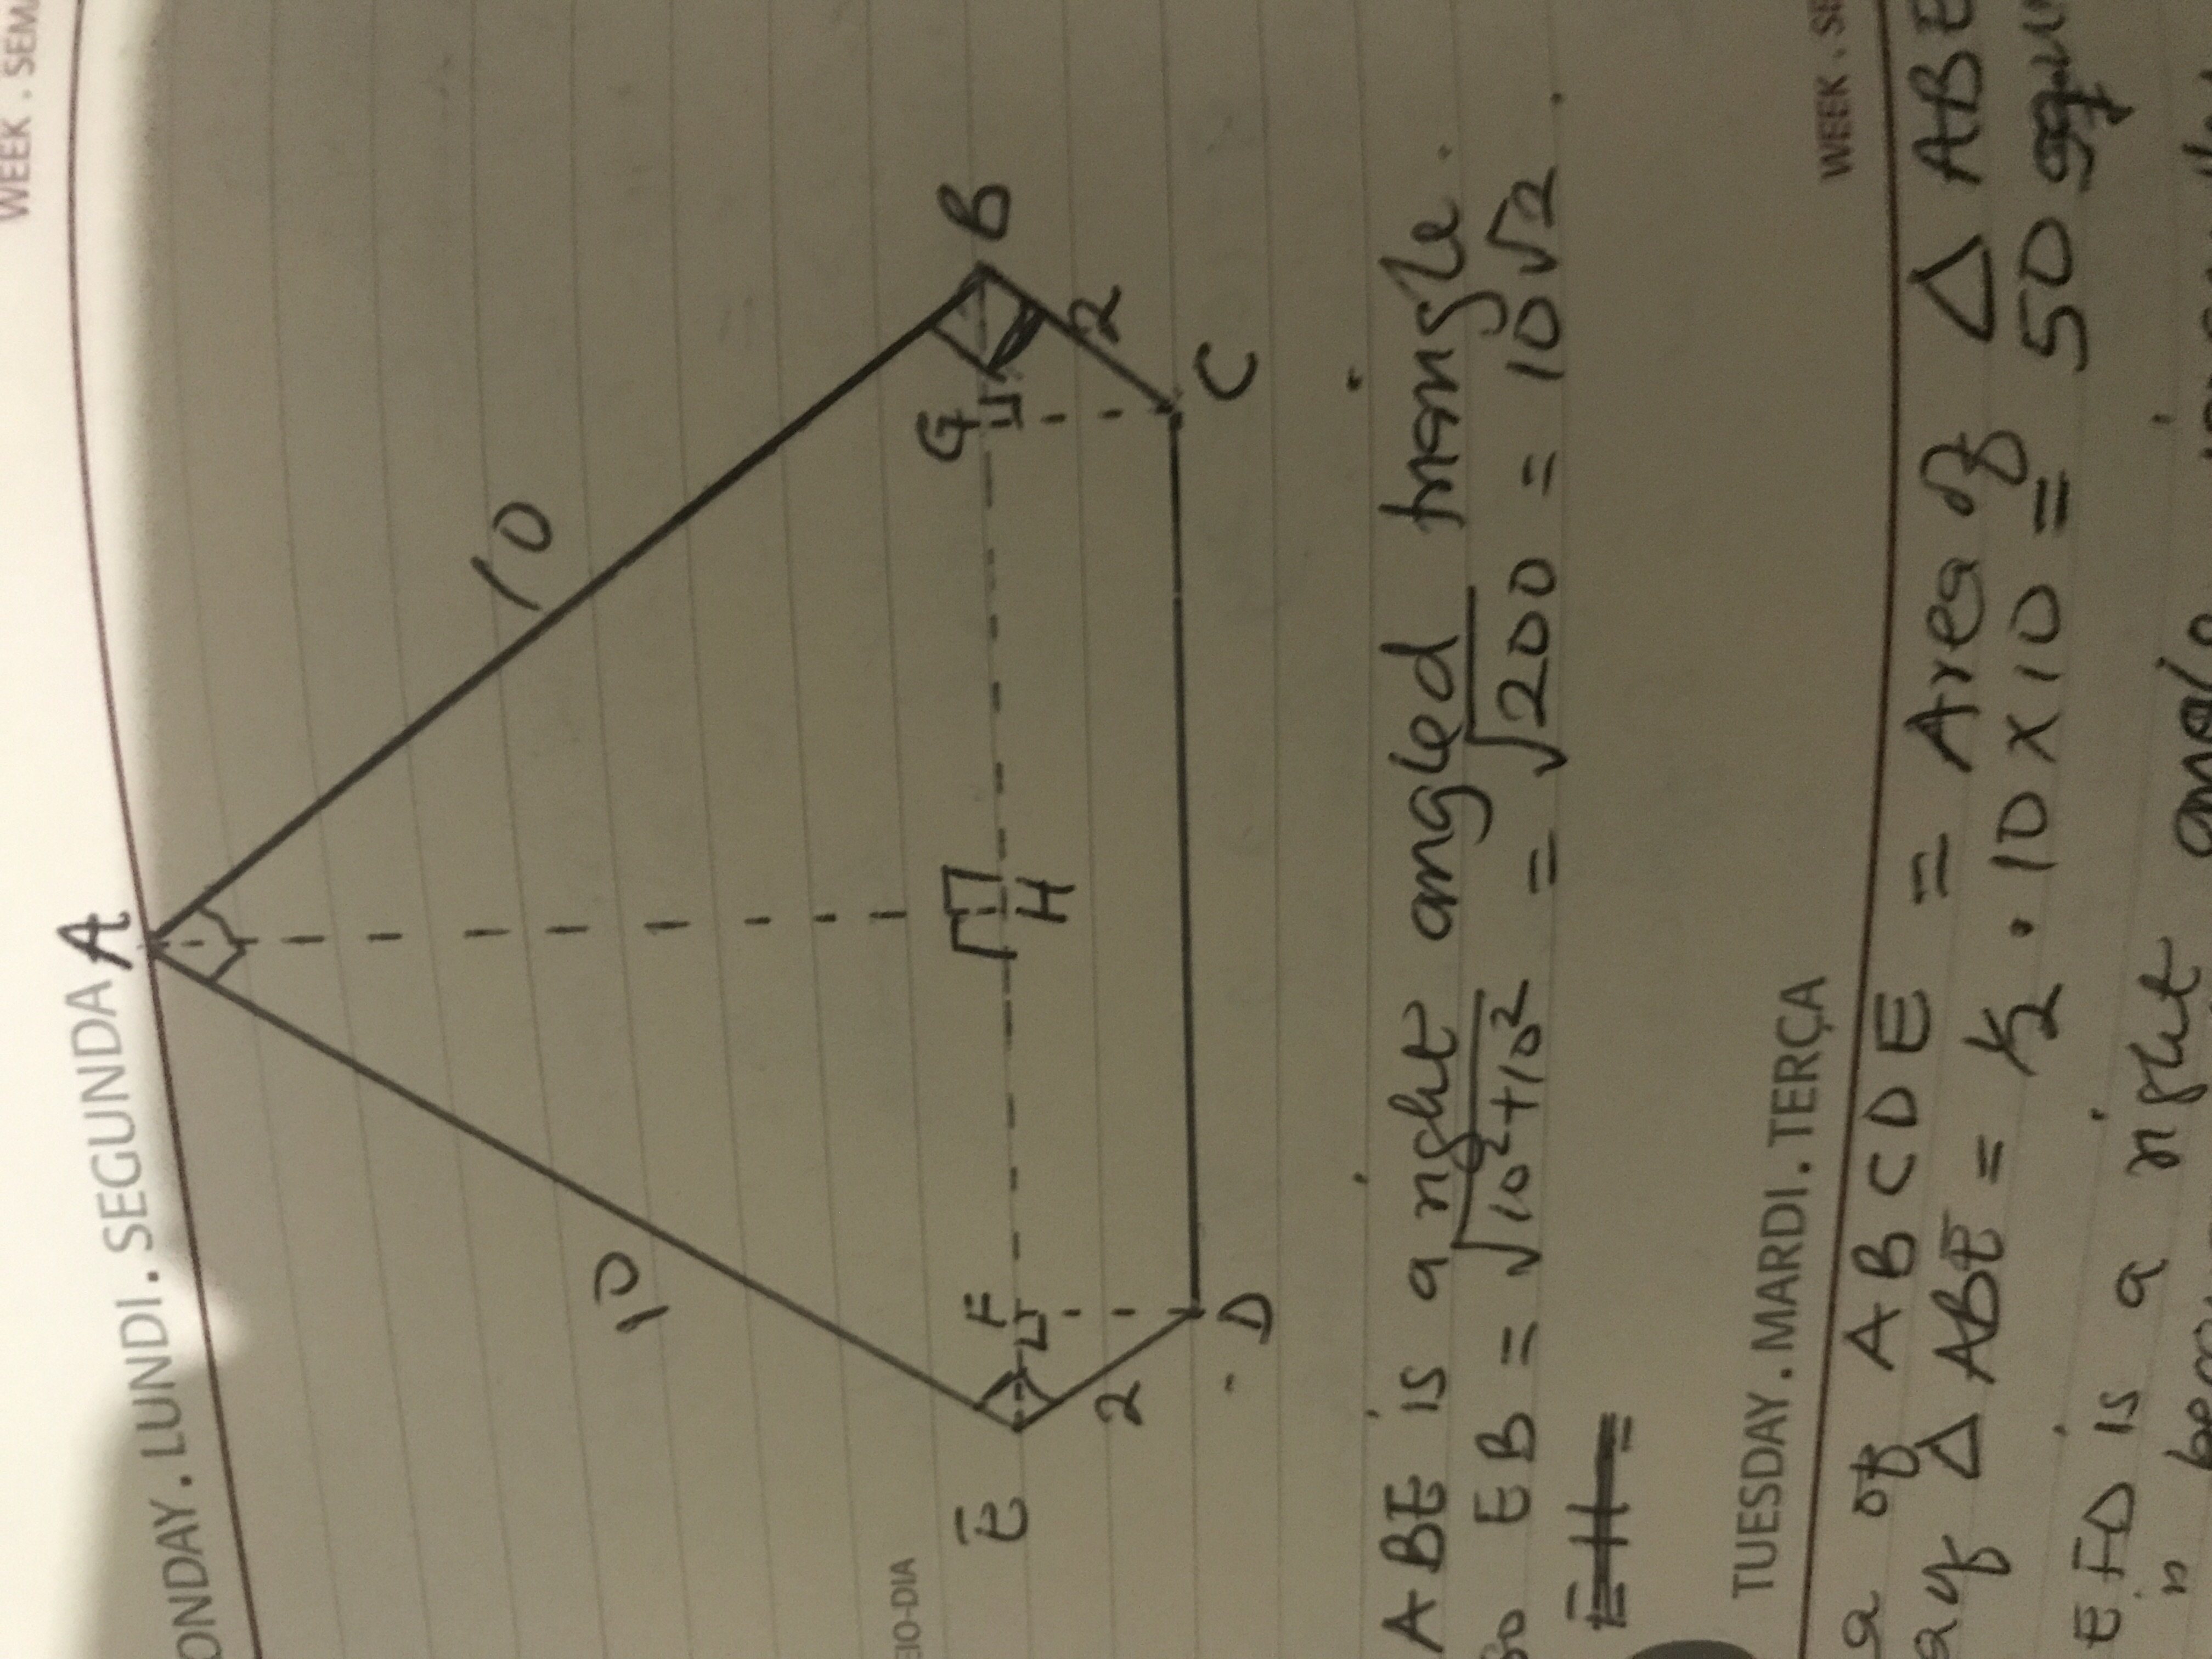 WEEK . SEM
ONDAY . LUNDI . SEGUNDA
A
10
10
EIO-DIA
E
F
H
G
B
2
2
D
C
ABE is a right angled triangle.
so EB = √10²+10² = √200 = 10√2
EH =
TUESDAY . MARDI . TERÇA
WEEK . SE
a of ABCDE = Area of △ ABE
△ ABE = ½ . 10 × 10 = 50
EFD is a right angle